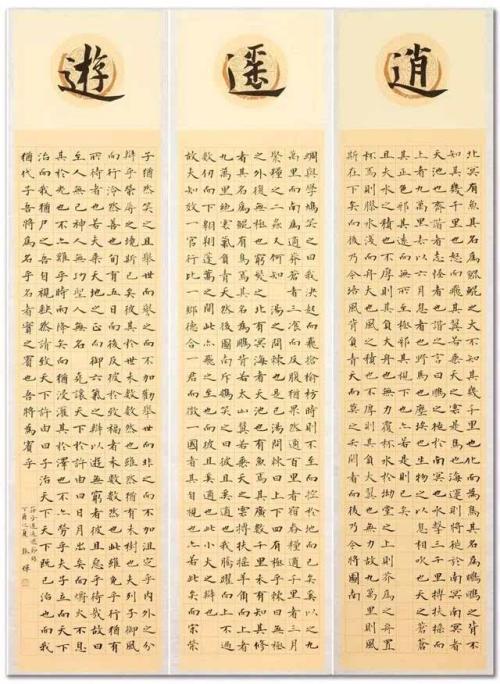 逍
遥
遊
北冥有魚其名爲鯤鯤之大不知其幾千里也化而爲鳥其名爲鵬鵬之背不
知其幾千里也怒而飛其翼若垂天之雲是鳥也海運則將徙於南冥南冥者
天池也齊諧者志怪者也諧之言曰鵬之徙於南冥也水擊三千里摶扶搖而
上者九萬里去以六月息者也野馬也塵埃也生物之以息相吹也天之蒼蒼
其正色邪其遠而無所至極邪其視下也亦若是則已矣
且夫水之積也不厚則其負大舟也無力覆杯水於坳堂之上則芥爲之舟置
杯焉則膠水淺而舟大也風之積也不厚則其負大翼也無力故九萬里則風
斯在下矣而後乃今培風背負青天而莫之夭閼者而後乃今將圖南
蜩與學鳩笑之曰我決起而飛搶榆枋時則不至而控於地而已矣奚以之九
萬里而南爲適莽蒼者三湌而反腹猶果然適百里者宿舂糧適千里者三月
聚糧之二蟲又何知 湯之問棘也是已湯問棘曰上下四方有極乎棘曰無極
之外復無極也窮髮之北有冥海者天池也有魚焉其廣數千里未有知其修
者其名爲鯤有鳥焉其名爲鵬背若太山翼若垂天之雲摶扶搖羊角而上者
九萬里絕雲氣負青天然後圖南斥鴳笑之曰彼且奚適也我騰躍而上不過
數仞而下翱翔蓬蒿之間此亦飛之至也而彼且奚適也此小大之辯也
故夫知效一官行比一鄉德合一君而徵一國者其自視也亦若此矣而宋榮
子猶然笑之且舉世而譽之而不加勸舉世而非之而不加沮定乎內外之分
辯乎榮辱之境斯已矣彼其於世未數數然也雖然猶有未樹也夫列子御風
而行泠然善也旬有五日而後反彼於致福者未數數然也此雖免乎行猶有
所待者也若夫乘天地之正而御六氣之辯以遊無窮者彼且惡乎待哉故曰
至人無己神人無功聖人無名 堯讓天下於許由曰日月出矣而爝火不息
其於光也不亦難乎時雨降矣而猶浸灌其於澤也不亦勞乎夫子立而天下
治而我猶尸之吾自視缺然請致天下許由曰子治天下天下既已治也而我
猶代子吾將爲名乎名者實之賓也吾將爲賓乎
莊子逍遥遊節錄
丁酉之夏